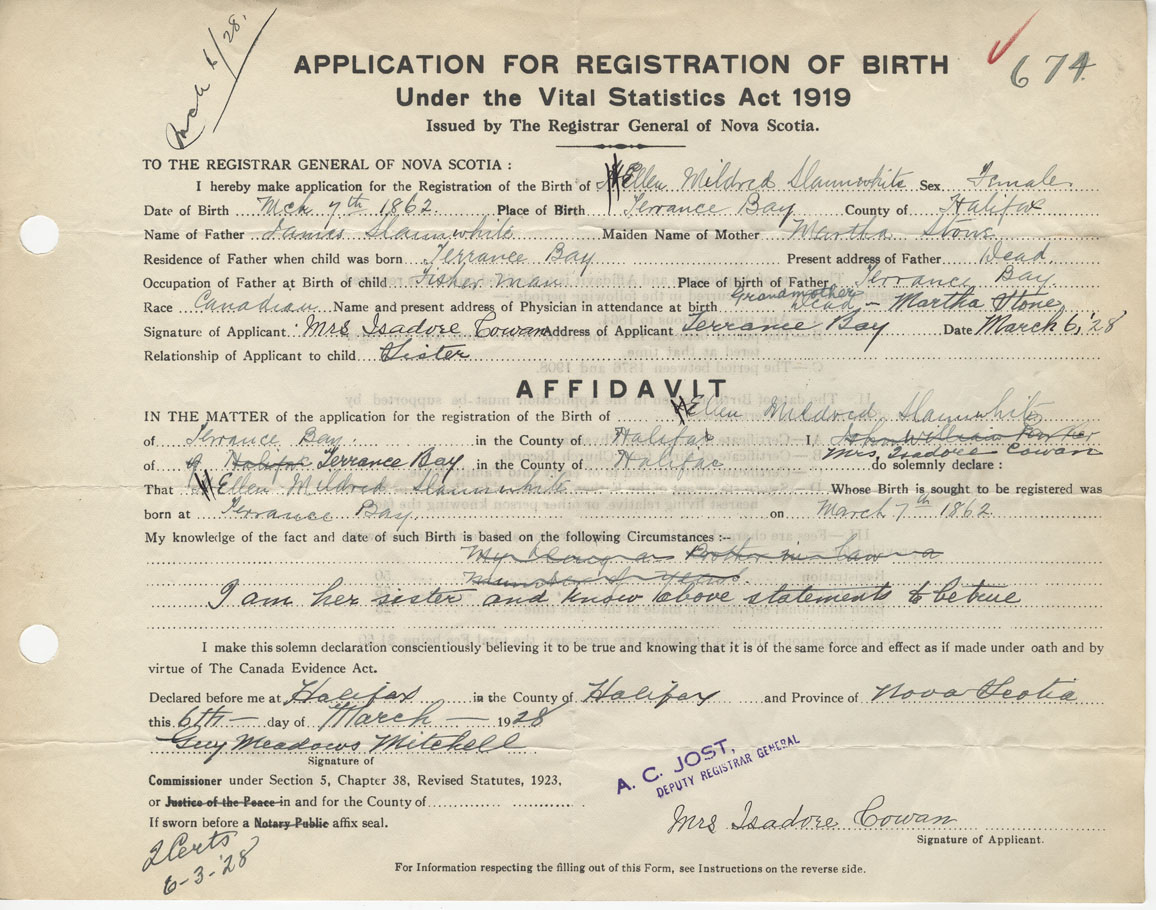 Mch 6/28.
674
APPLICATION FOR REGISTRATION OF BIRTH
Under the Vital Statistics Act 1919
Issued by The Registrar General of Nova Scotia.
TO THE REGISTRAR GENERAL OF NOVA SCOTIA :
I hereby make application for the Registration of the Birth of Ellen Mildred Slaunwhite Sex Female
Date of Birth Mch 7th 1862. Place of Birth Terrance Bay County of Halifax
Name of Father James Slaunwhite Maiden Name of Mother Martha Stone
Residence of Father when child was born Terrance Bay Present address of Father Dead.
Occupation of Father at Birth of child Fisher man Place of birth of Father Terrance Bay.
Race Canadian Name and present address of Physician in attendance at birth Grandmother Dead - Martha Stone
Signature of Applicant Mrs Isadore Cowan Address of Applicant Terrance Bay Date March 6, '28
Relationship of Applicant to child Sister
AFFIDAVIT
IN THE MATTER of the application for the registration of the Birth of Ellen Mildred Slaunwhite
of Terrance Bay. in the County of Halifax I, John William
of Halifax Terrance Bay in the County of Halifax Mrs. Isadore Cowan do solemnly declare :
That Ellen Mildred Slaunwhite Whose Birth is sought to be registered was
born at Terrance Bay. on March 7th 1862
My knowledge of the fact and date of such Birth is based on the following Circumstances :--
My being a Brother in law a
number of years.
I am her sister and know above statements to be true
I make this solemn declaration conscientiously believing it to be true and knowing that it is of the same force and effect as if made under oath and by
virtue of The Canada Evidence Act.
Declared before me at Halifax in the County of Halifax and Province of Nova Scotia
this 6th day of March 1928
Guy Meadows Mitchell
Signature of
Commissioner under Section 5, Chapter 38, Revised Statutes, 1923,
or Justice of the Peace in and for the County of
If sworn before a Notary Public affix seal.
A. C. JOST,
DEPUTY REGISTRAR GENERAL
Mrs Isadore Cowan
Signature of Applicant.
2 Certs
6-3-'28
For Information respecting the filling out of this Form, see Instructions on the reverse side.